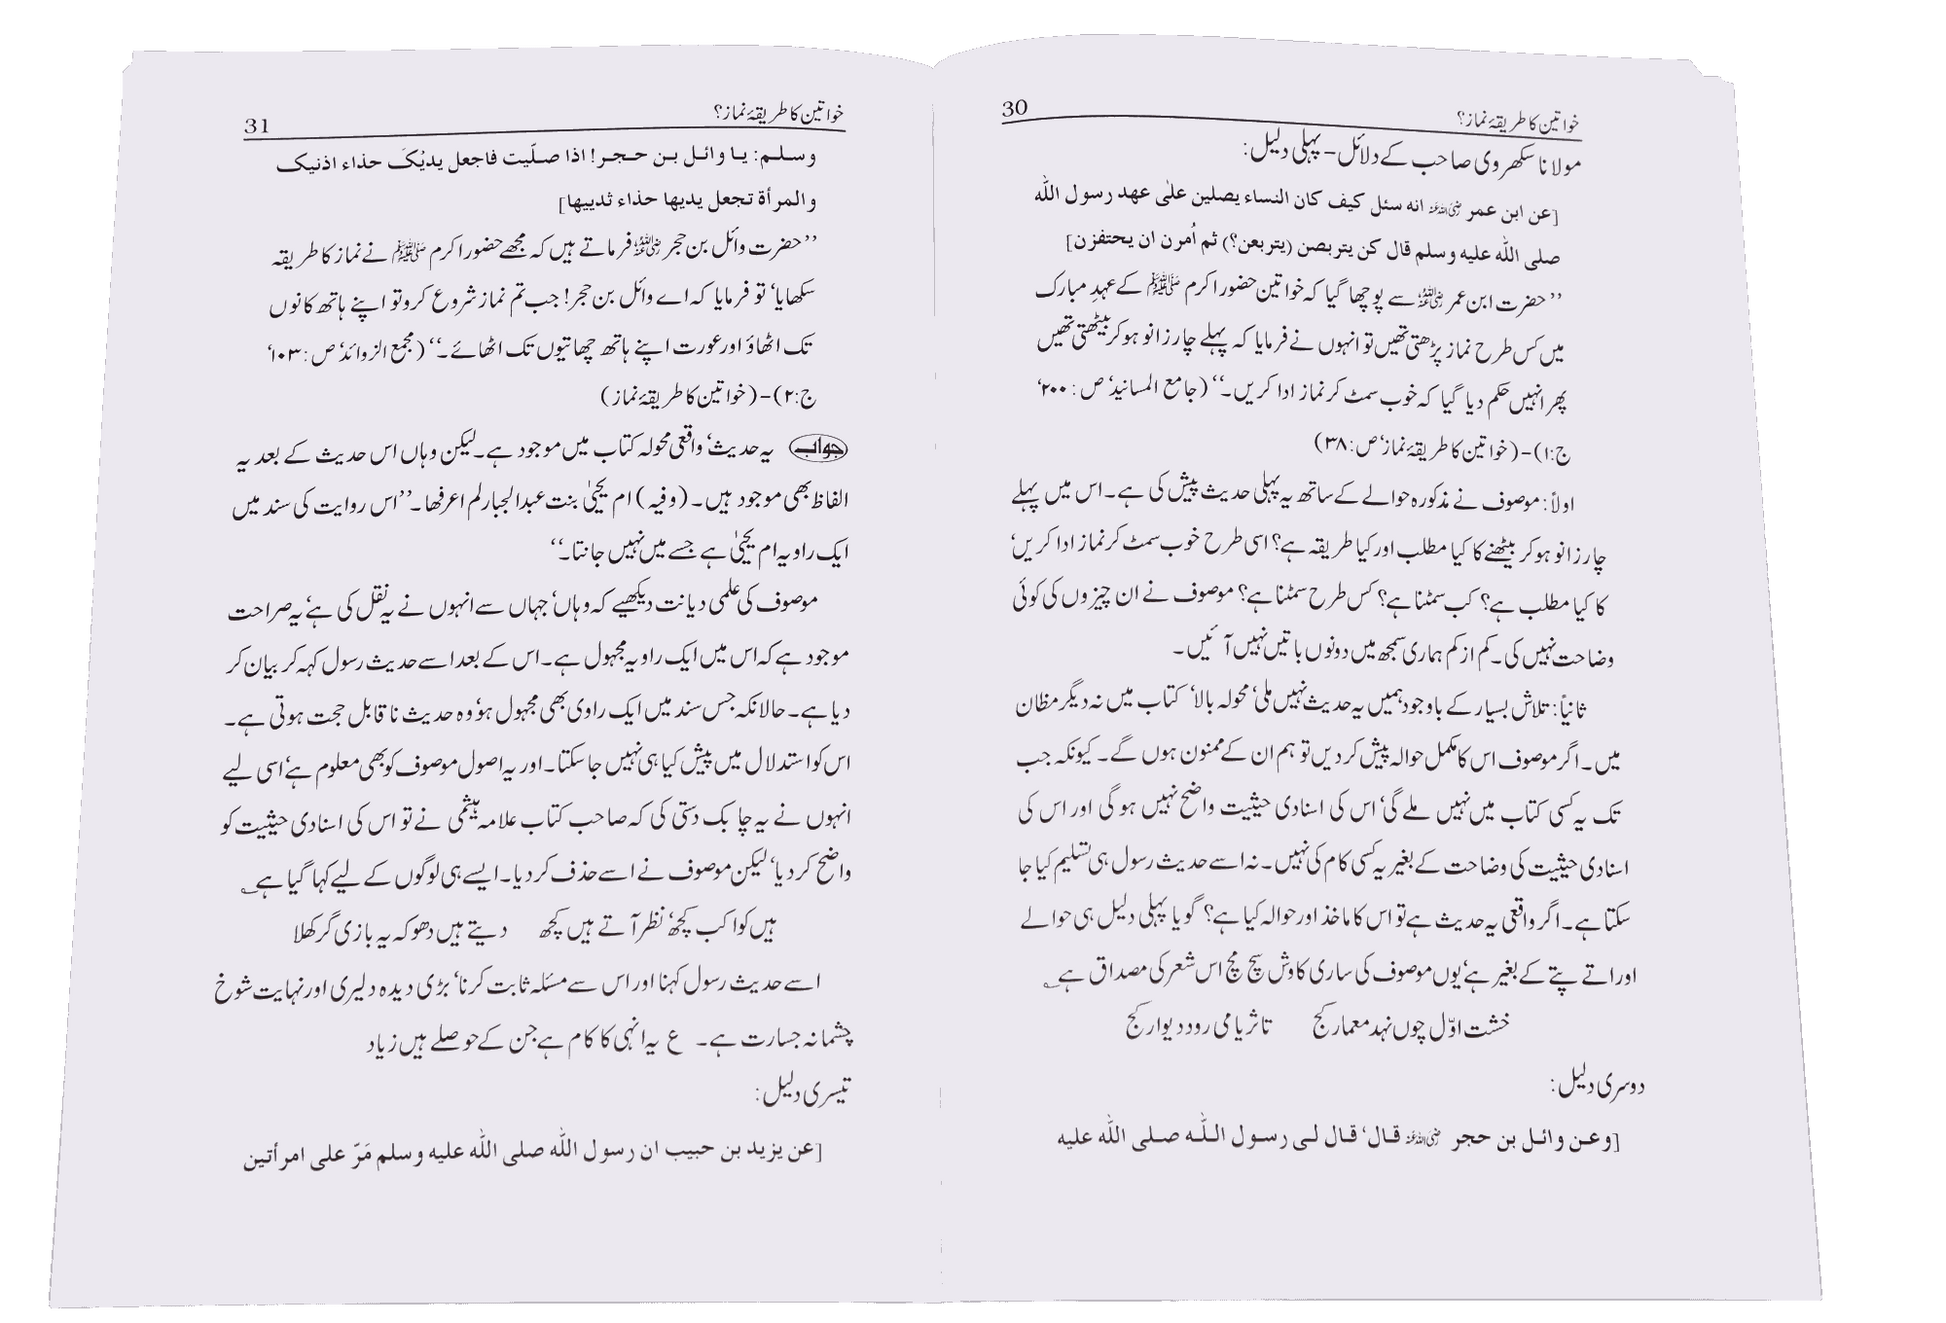 خواتین کا طریقۂ نماز؟ 30
مولانا سکھروی صاحب کے دلائل – پہلی دلیل:
[عن ابن عمر رضی اللہ عنہ انہ سئل کیف کان النساء یصلین علٰی عھد رسول اللہ
صلی اللہ علیہ وسلم قال کن یتربصن (یتربعن؟) ثم اُمرن ان یحتفزن]
’’حضرت ابن عمر رضی اللہ عنہ سے پوچھا گیا کہ خواتین حضور اکرم ﷺ کے عہدِ مبارک
میں کس طرح نماز پڑھتی تھیں تو انہوں نے فرمایا کہ پہلے چار زانو ہو کر بیٹھتی تھیں
پھر انہیں حکم دیا گیا کہ خوب سمٹ کر نماز ادا کریں۔‘‘ (جامع المسانید‘ ص: ۲۰۰‘
ج:۱)–(خواتین کا طریقۂ نماز‘ ص:۳۸)
اولاً: موصوف نے مذکورہ حوالے کے ساتھ یہ پہلی حدیث پیش کی ہے۔ اس میں پہلے
چار زانو ہو کر بیٹھنے کا کیا مطلب اور کیا طریقہ ہے؟ اسی طرح خوب سمٹ کر نماز ادا کریں‘
کا کیا مطلب ہے؟ کب سمٹنا ہے؟ کس طرح سمٹنا ہے؟ موصوف نے ان چیزوں کی کوئی
وضاحت نہیں کی۔ کم از کم ہماری سمجھ میں دونوں باتیں نہیں آئیں۔
ثانیاً: تلاش بسیار کے باوجود ہمیں یہ حدیث نہیں ملی‘ محولہ بالا‘ کتاب میں نہ دیگر مظان
میں۔ اگر موصوف اس کا مکمل حوالہ پیش کر دیں تو ہم ان کے ممنون ہوں گے۔ کیونکہ جب
تک یہ کسی کتاب میں نہیں ملے گی‘ اس کی اسنادی حیثیت واضح نہیں ہو گی اور اس کی
اسنادی حیثیت کی وضاحت کے بغیر یہ کسی کام کی نہیں۔ نہ اسے حدیث رسول ہی تسلیم کیا جا
سکتا ہے۔ اگر واقعی یہ حدیث ہے تو اس کا ماخذ اور حوالہ کیا ہے؟ گویا پہلی دلیل ہی حوالے
اور اتے پتے کے بغیر ہے‘ یوں موصوف کی ساری کاوش سچ مچ اس شعر کی مصداق ہے ؎
خشت اوّل چوں نہد معمار کج تا ثریا می رود دیوار کج
دوسری دلیل:
[وعن وائل بن حجر رضی اللہ عنہ قال‘ قال لی رسول اللہ صلی اللہ علیہ
خواتین کا طریقۂ نماز؟ 31
وسلم: یا وائل بن حجر! اذا صلّیت فاجعل یدیْکَ حذاء اذنیک
والمرأۃ تجعل یدیھا حذاء ثدییھا]
’’حضرت وائل بن حجر رضی اللہ عنہ فرماتے ہیں کہ مجھے حضور اکرم ﷺ نے نماز کا طریقہ
سکھایا‘ تو فرمایا کہ اے وائل بن حجر! جب تم نماز شروع کرو تو اپنے ہاتھ کانوں
تک اٹھاؤ اور عورت اپنے ہاتھ چھاتیوں تک اٹھائے۔‘‘ (مجمع الزوائد‘ ص:۱۰۳‘
ج:۲)–(خواتین کا طریقۂ نماز)
جواب یہ حدیث‘ واقعی محولہ کتاب میں موجود ہے۔ لیکن وہاں اس حدیث کے بعد یہ
الفاظ بھی موجود ہیں۔ (وفیہ) ام یحییٰ بنت عبدالجبار لم اعرفھا۔’’اس روایت کی سند میں
ایک راویہ ام یحییٰ ہے جسے میں نہیں جانتا۔‘‘
موصوف کی علمی دیانت دیکھیے کہ وہاں‘ جہاں سے انہوں نے یہ نقل کی ہے‘ یہ صراحت
موجود ہے کہ اس میں ایک راویہ مجہول ہے۔ اس کے بعد اسے حدیث رسول کہہ کر بیان کر
دیا ہے۔ حالانکہ جس سند میں ایک راوی بھی مجہول ہو‘ وہ حدیث ناقابل حجت ہوتی ہے۔
اس کو استدلال میں پیش کیا ہی نہیں جا سکتا۔ اور یہ اصول موصوف کو بھی معلوم ہے‘ اسی لیے
انہوں نے یہ چابک دستی کی کہ صاحب کتاب علامہ ہیثمی نے تو اس کی اسنادی حیثیت کو
واضح کر دیا‘ لیکن موصوف نے اسے حذف کر دیا۔ ایسے ہی لوگوں کے لیے کہا گیا ہے ؎
ہیں کواکب کچھ‘ نظر آتے ہیں کچھ دیتے ہیں دھوکہ یہ بازی گر کھلا
اسے حدیث رسول کہنا اور اس سے مسئلہ ثابت کرنا‘ بڑی دیدہ دلیری اور نہایت شوخ
چشمانہ جسارت ہے۔ ع یہ انہی کا کام ہے جن کے حوصلے ہیں زیاد
تیسری دلیل:
[عن یزید بن حبیب ان رسول اللہ صلی اللہ علیہ وسلم مَرّ علی امرأتین